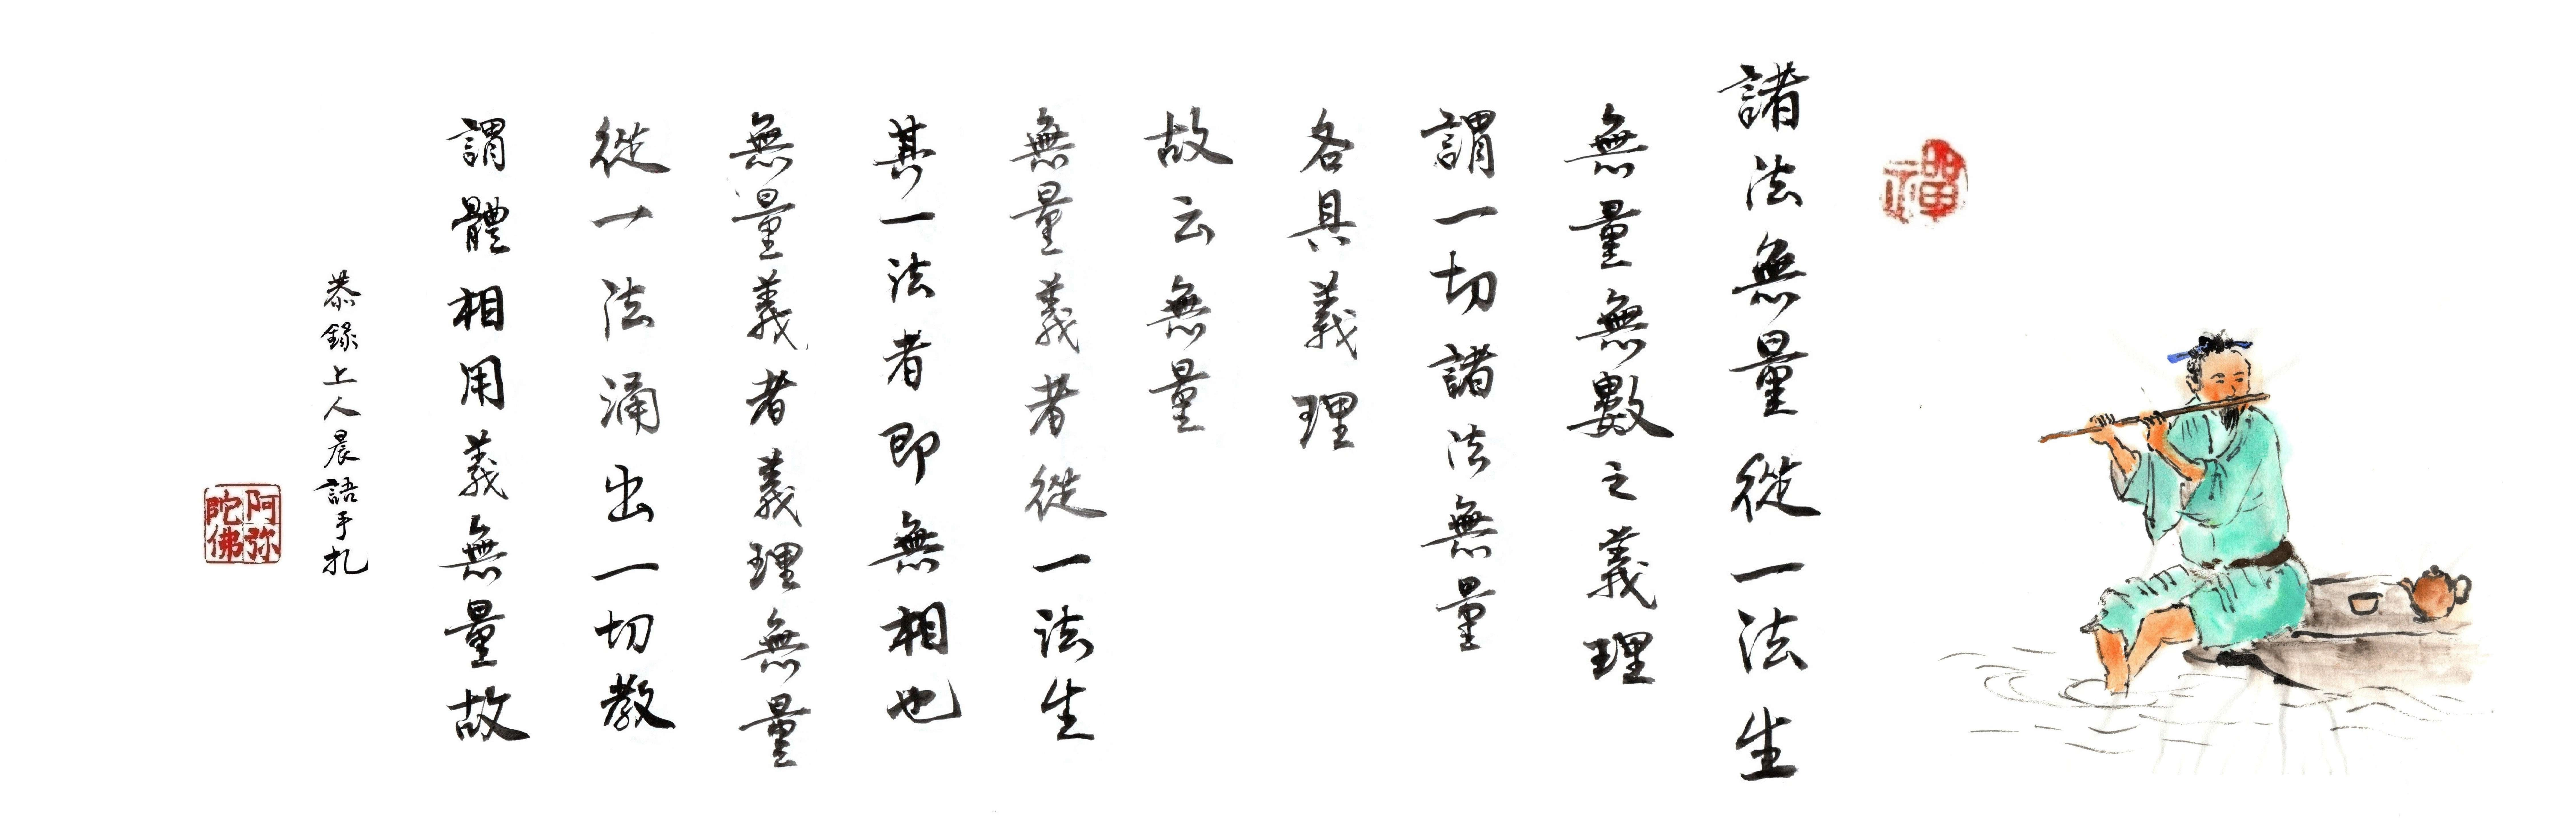 禪
諸法無量從一法生
無量無數之義理
謂一切諸法無量
各具義理
故云無量
無量義者從一法生
其一法者即無相也
無量義者義理無量
從一法涌出一切教
謂體相用義無量故
恭錄上人晨語手扎
阿弥陀佛